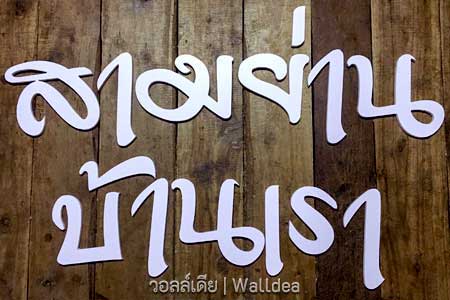 สามย่าน
บ้านเรา
วอลล์เดีย | Walldea